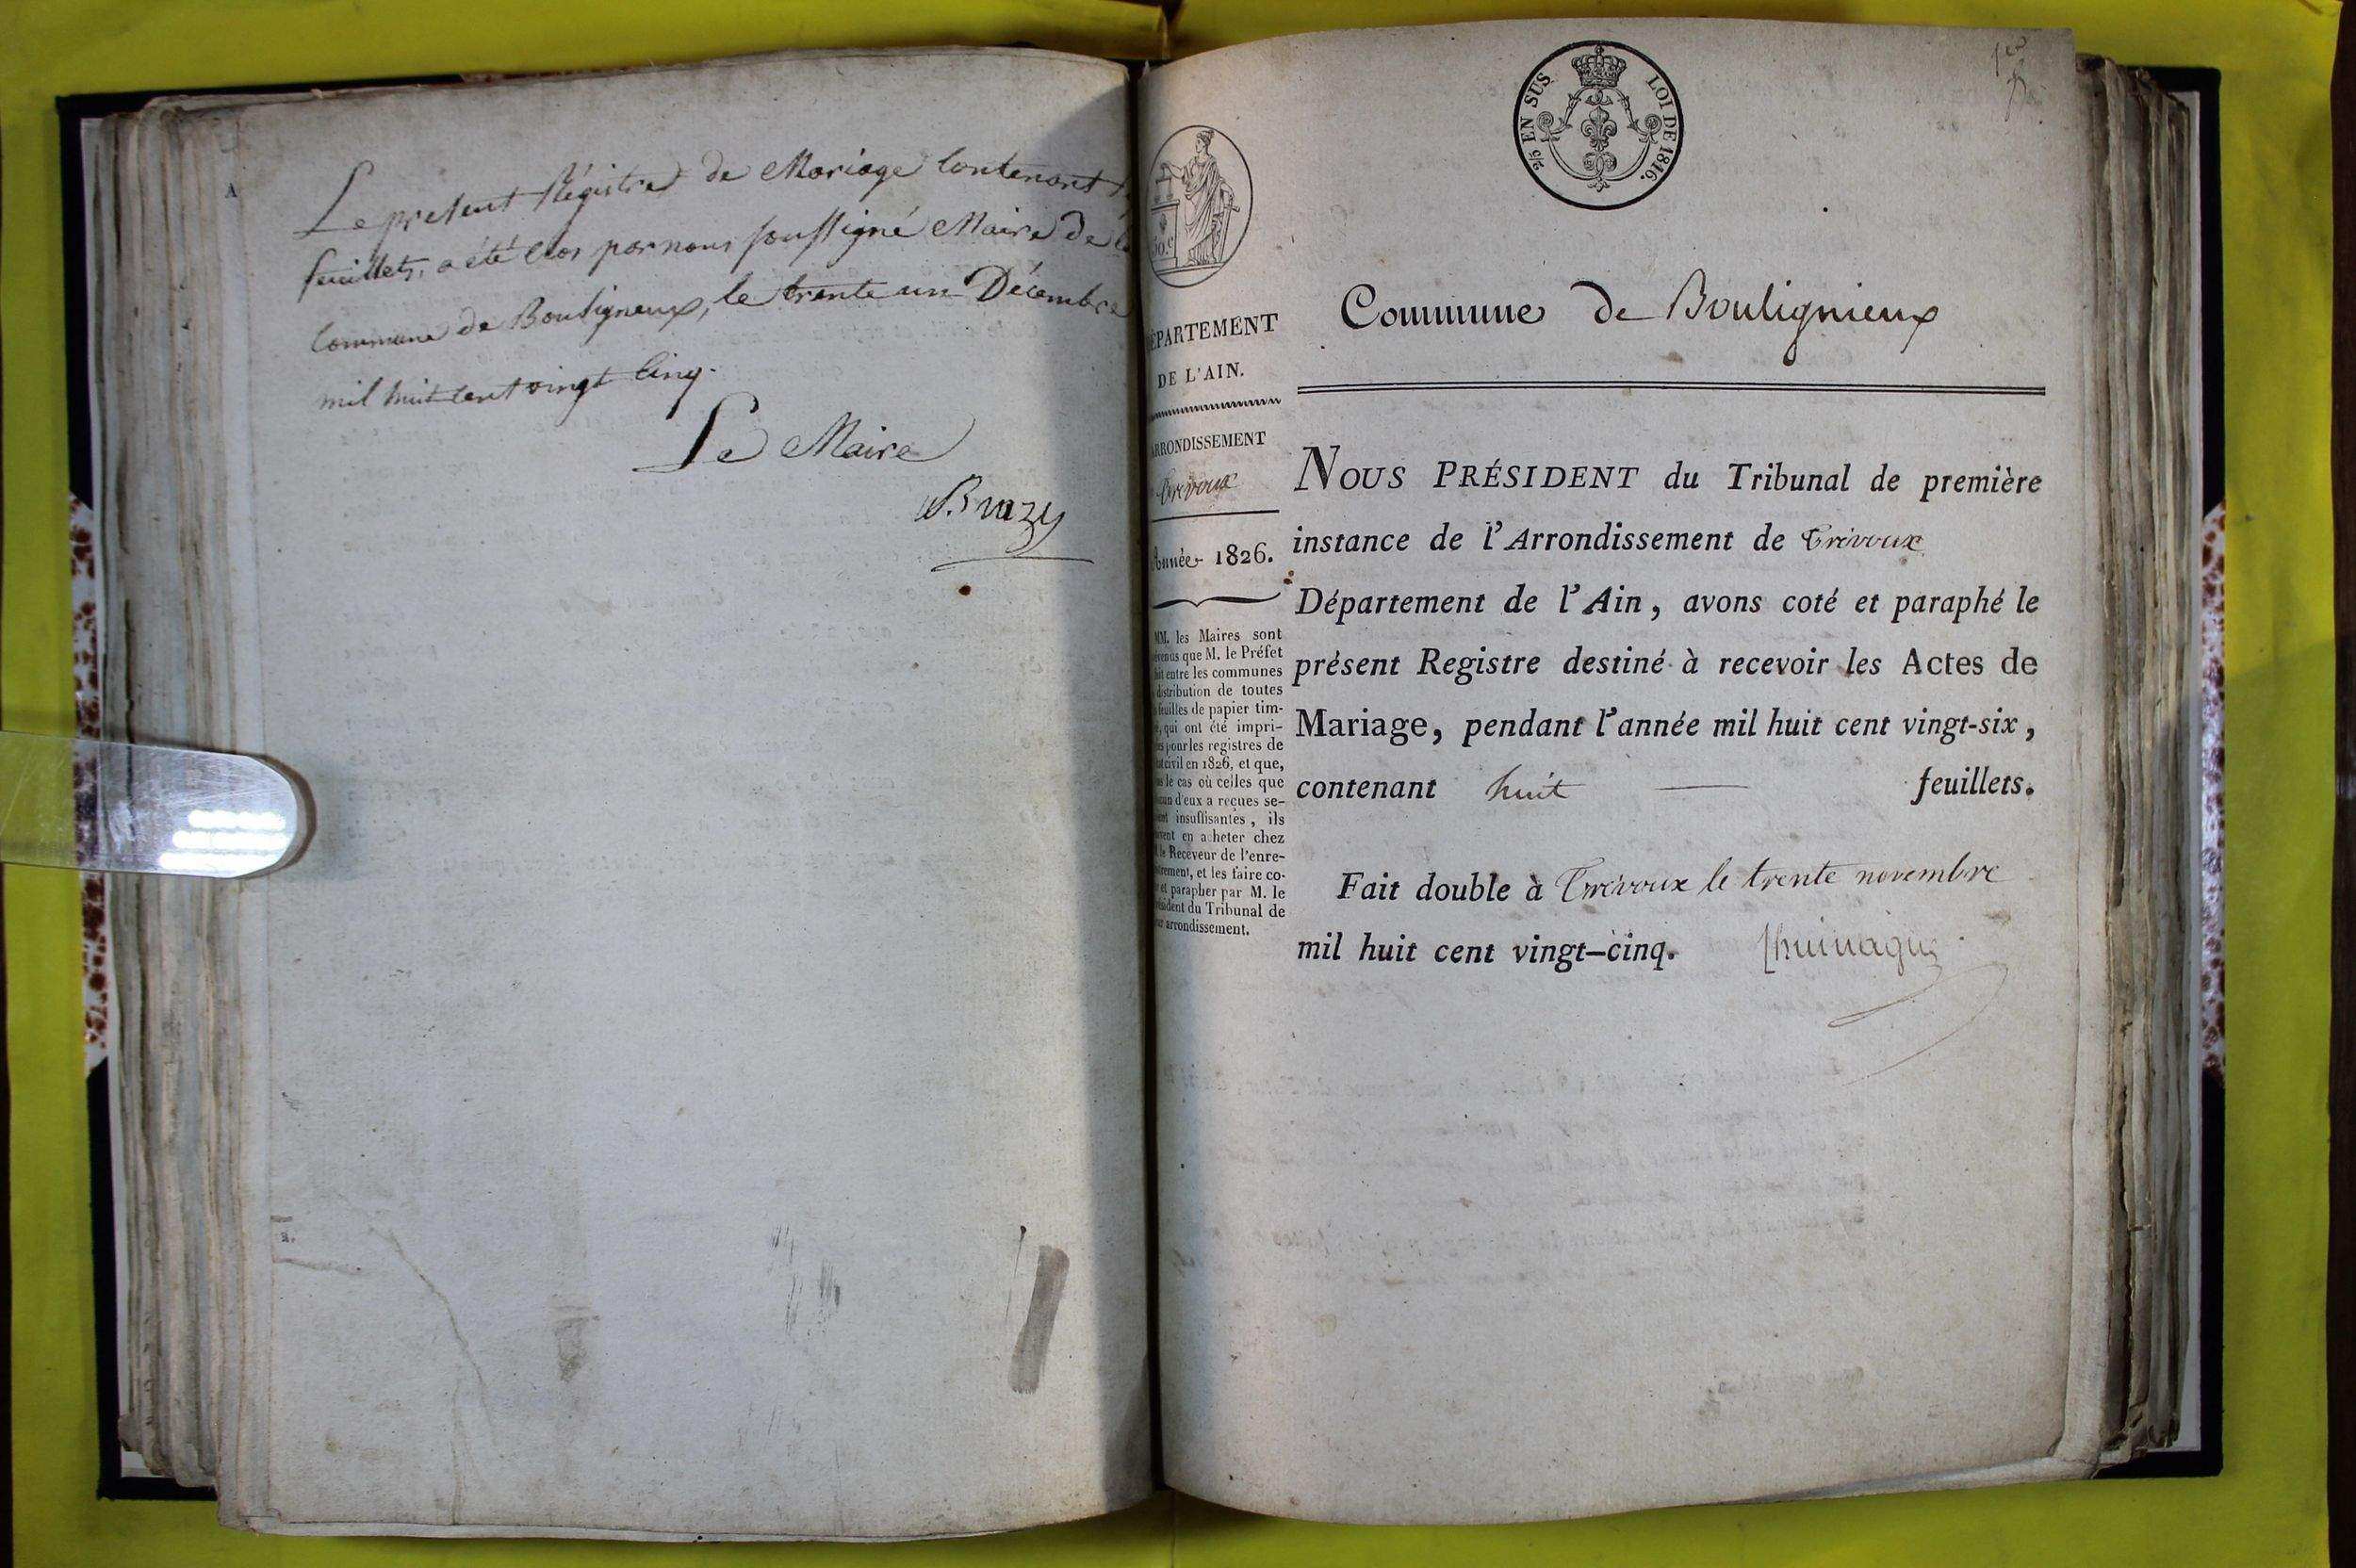 Le présent Régistre de Mariage Contenant
feuillets, a été clos par nous soussigné Maire de la
Commune de Bouligneux, le trente un Décembre
mil huit cent vingt Cinq.
Le Maire
Bruzy
1er
2/5 EN SUS LOI DE 1816.
50.c
DÉPARTEMENT
DE L'AIN.
ARRONDISSEMENT
Trévoux
Année 1826.
MM. les Maires sont
prévenus que M. le Préfet
fait entre les communes
distribution de toutes
feuilles de papier tim-
qui ont été impri-
pour les registres de
civil en 1826, et que,
le cas où celles que
d'eux a reçues se-
insuffisantes, ils
en acheter chez
le Receveur de l'enre-
et les faire co-
et parapher par M. le
Président du Tribunal de
arrondissement.
Commune de Boulignieux
NOUS PRÉSIDENT du Tribunal de première
instance de l'Arrondissement de Trévoux
Département de l'Ain, avons coté et paraphé le
présent Registre destiné à recevoir les Actes de
Mariage, pendant l'année mil huit cent vingt-six,
contenant huit feuillets.
Fait double à Trévoux le trente novembre
mil huit cent vingt-cinq.